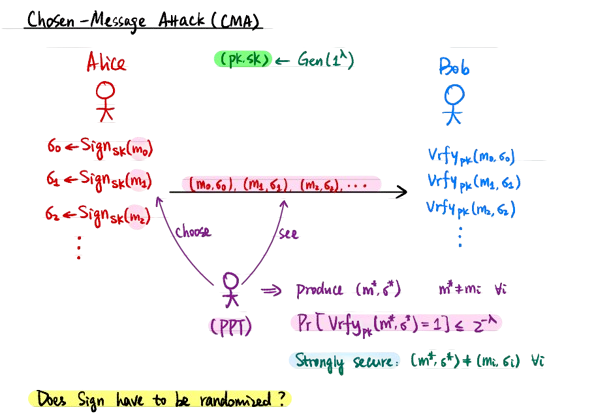 Chosen-Message Attack (CMA)
Alice
(pk.sk) ← Gen(1^λ)
Bob
σ0 ← Sign_sk(m0)
σ1 ← Sign_sk(m1)
σ2 ← Sign_sk(m2)
⋮
(m0,σ0), (m1,σ1), (m2,σ2), ...
Vrfy_pk(m0,σ0)
Vrfy_pk(m1,σ1)
Vrfy_pk(m2,σ2)
⋮
choose
see
(PPT)
⇒ Produce (m*,σ*) m*≠mi ∀i
Pr[Vrfy_pk(m*,σ*)=1] ≤ 2^-λ
Strongly secure: (m*,σ*) ≠ (mi,σi) ∀i
Does Sign have to be randomized?